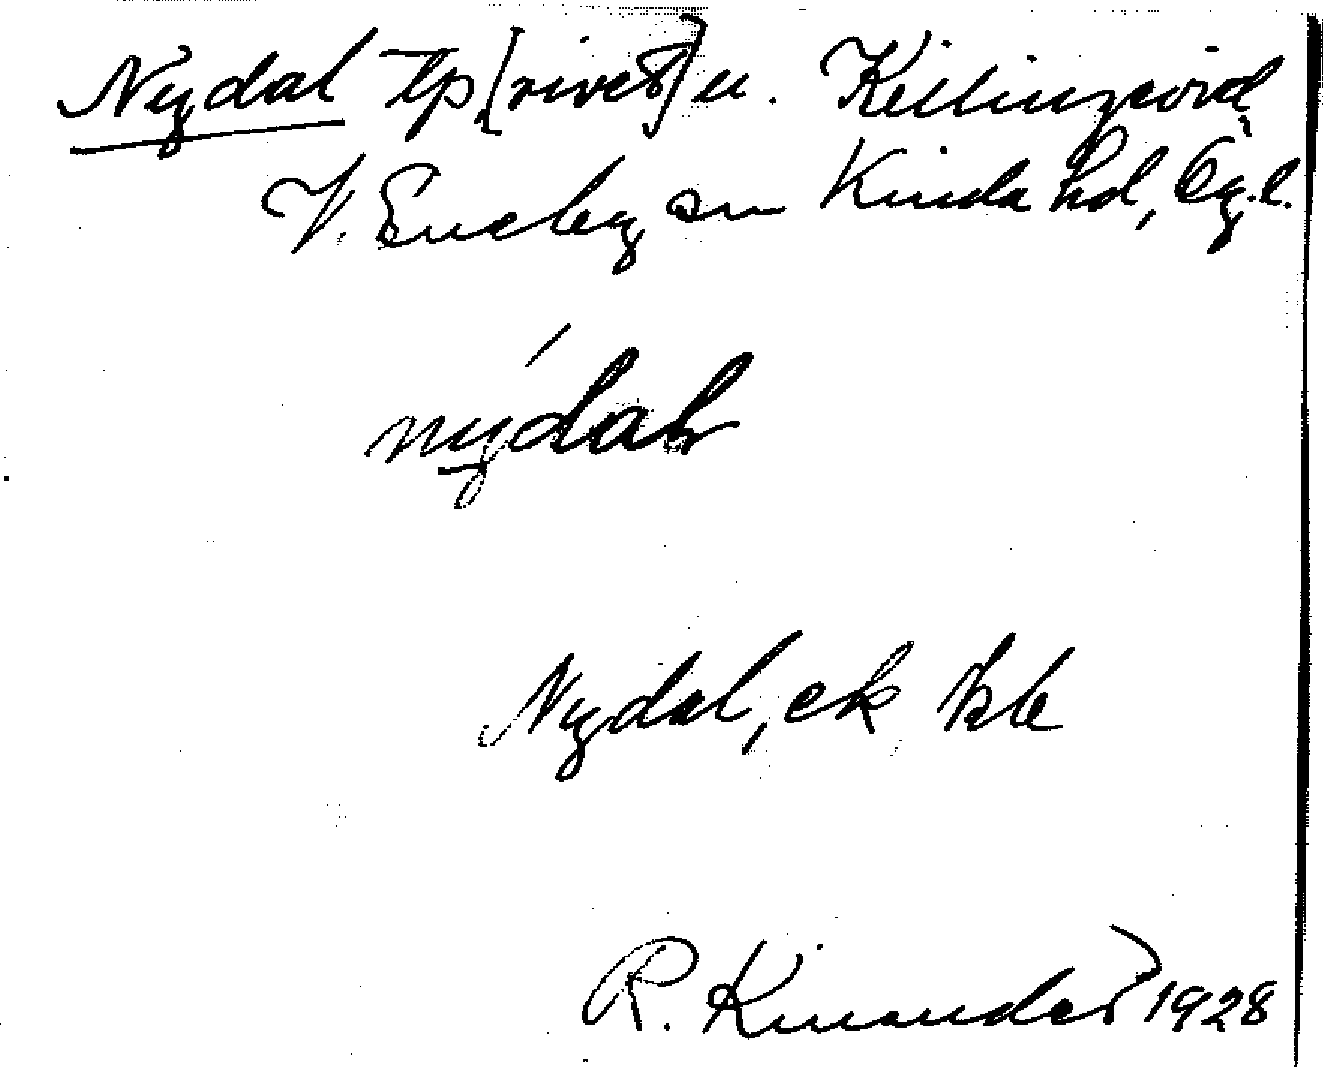 Nydal tp [rivet] u. Killingevid
V. Eneby sn Kinda hd, Ög.l.
nýdal
Nydal, ek bl
R. Kinander 1928